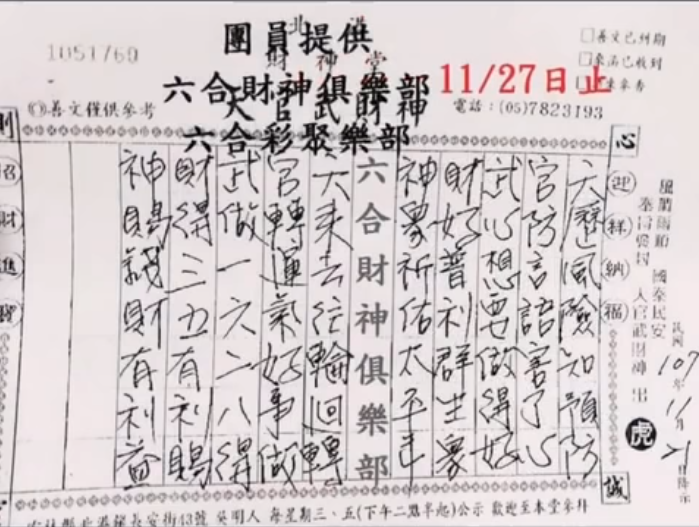 北港
團員提供
財神堂
六合財神俱樂部
天官武財神
六合彩聚樂部
11/27日止
1051769
◎善文僅供參考
□善文已到期
電話:(05)7823193
心
誠
迎祥納福
招財進寶
風調雨順 國泰民安
天官武財神 出
民國107年11月21日降示
虎
天歷風險知領防
官防言語害了心
武心想要做得好
財好普利群生眾
神眾祈佑太平年
六合財神俱樂部
天來去往輪迴轉
官轉運氣好事做
武做一六二八得
財得三五有利賜
神賜錢財有利益
長安街43號 吳明人 每星期三、五(下午二點半起)公示 歡迎至本堂參拜